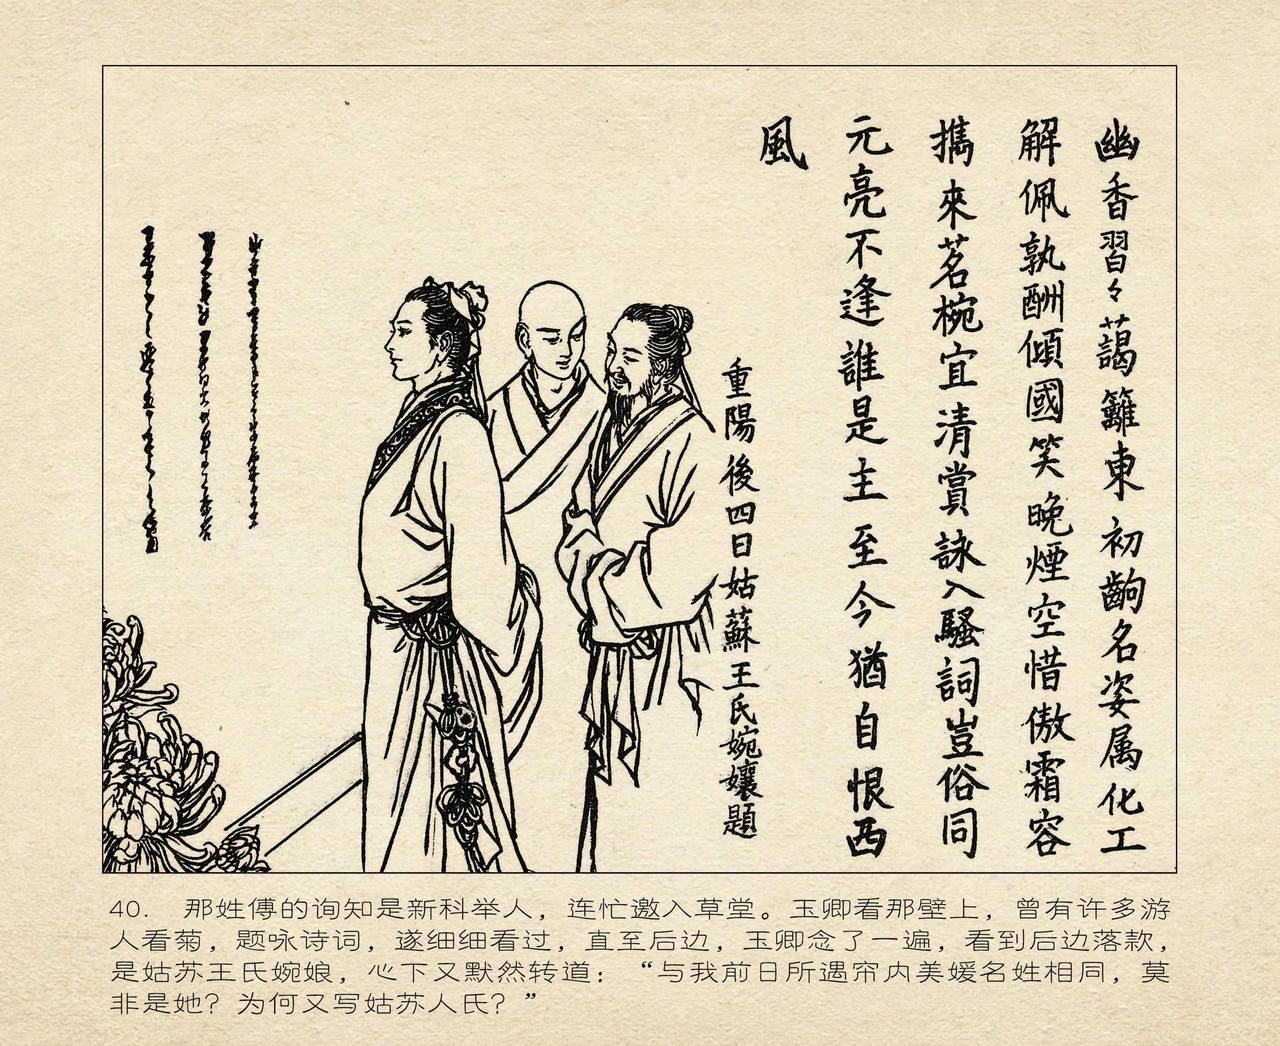 幽香習々藹籬東初齣名姿属化工
解佩孰酬傾國笑晚煙空惜傲霜容
攜來茗椀宜清賞詠入騷詞豈俗同
元亮不逢誰是主至今猶自恨西
風
重陽後四日姑蘇王氏婉孃題
40. 那姓傅的询知是新科举人，连忙邀入草堂。玉卿看那壁上，曾有许多游
人看菊，题咏诗词，遂细细看过，直至后边，玉卿念了一遍，看到后边落款，
是姑苏王氏婉娘，心下又默然转道：“与我前日所遇帘内美嫒名姓相同，莫
非是她？为何又写姑苏人氏？”